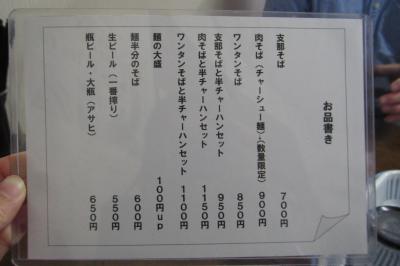 お品書き
支那そば 700円
肉そば(チャーシュー麺)・(数量限定) 900円
ワンタンそば 850円
支那そばと半チャーハンセット 950円
肉そばと半チャーハンセット 1150円
ワンタンそばと半チャーハンセット 1100円
麺の大盛 100円up
麺半分のそば 600円
生ビール(一番搾り) 550円
瓶ビール・大瓶(アサヒ) 650円